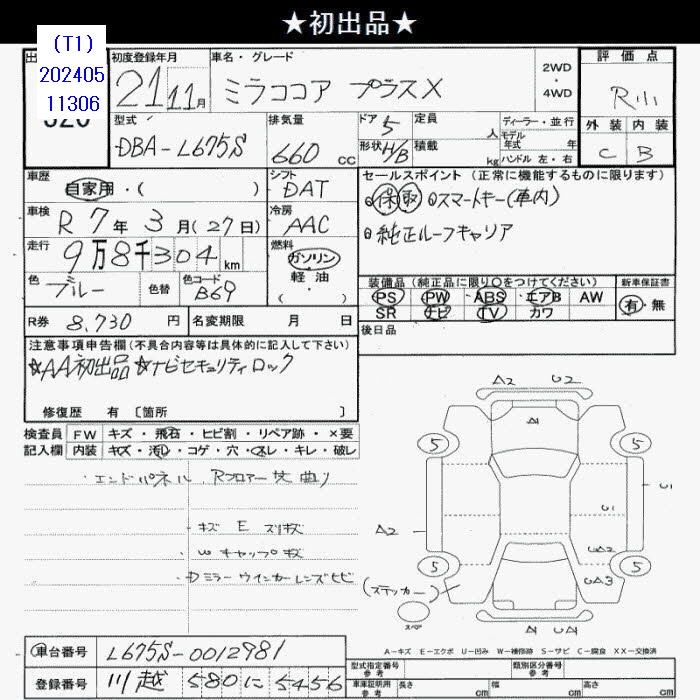 ★初出品★
(T1)
202405
11306
初度登録年月
21 11月
車名・グレード
ミラココア プラスX
2WD
・
4WD
評価点
外装 内装
C B
型式
DBA-L675S
排気量
660 cc
ドア
5
形状
H/B
定員
人
積載
kg
ディーラー・並行
モデル年式 年
ハンドル 左・右
車歴
自家用・( )
車検
R 7年 3月(27日)
走行
9万8千304km
色
ブルー
色替
色コード
B69
シフト
DAT
冷房
AAC
燃料
ガソリン
軽油
( ・ )
セールスポイント (正常に機能するものに限ります)
保 取 スマートキー(車内)
純正ルーフキャリア
装備品(純正品に限り○をつけてください)
PS PW ABS エアB AW
SR ナビ TV カワ
新車保証書
有・無
後日品
R券 8,730 円
名変期限 月 日
注意事項申告欄(不具合内容等は具体的に記入して下さい)
☆AA初出品 ☆ナビセキュリティロック
修復歴 有 〔箇所 〕
検査員記入欄
FW キズ・飛石・ヒビ割・リペア跡・×要
内装 キズ・汚レ・コゲ・穴・スレ・キレ・破レ
・エンドパネル、Rフロアー 曲り
・キズ E スリキズ
・Wキャップキズ
・Dミラーウインカーレンズヒビ
A2 U2
A1
5 5
U1
U1
A2
UA2
5 5
UA3
(ステッカー)
スペア
A1 UA1
A-キズ E-エクボ U-凹み W-補修跡 S-サビ C-腐食 XX-交換済
車台番号 L675S-0012981
登録番号 川越 580 に 5456
型式指定番号 参考
類別区分番号 参考
車庫証明用 参考
長さ cm
幅 cm
高さ cm